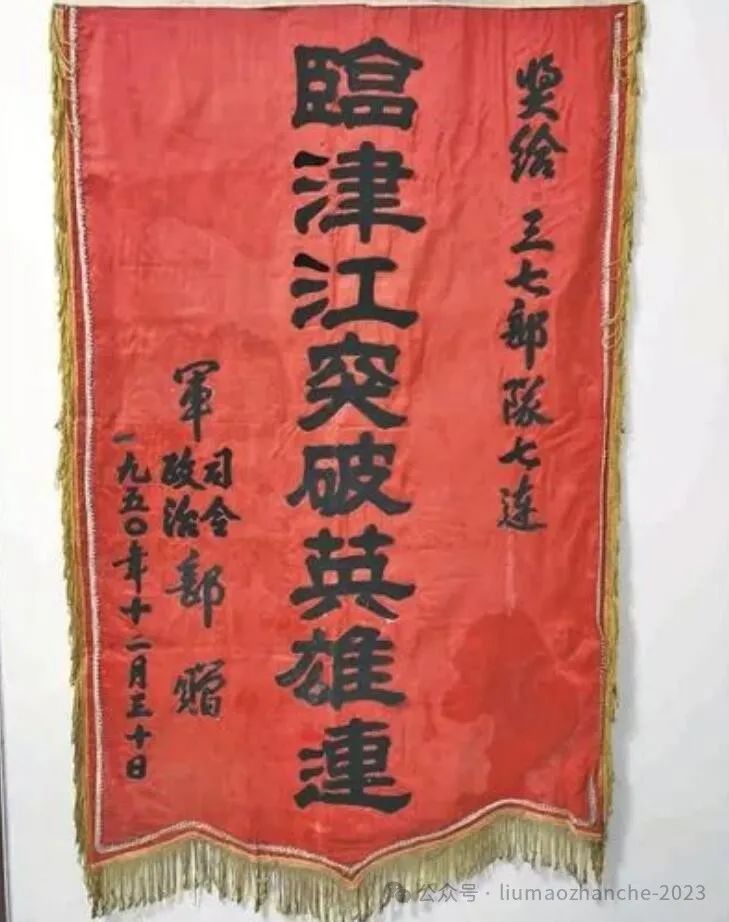 奖给 三七部隊七连
臨津江突破英雄連
軍
司令
政治
部 贈
一九五〇年十二月三十日
公众号 · liumaozhanche-2023